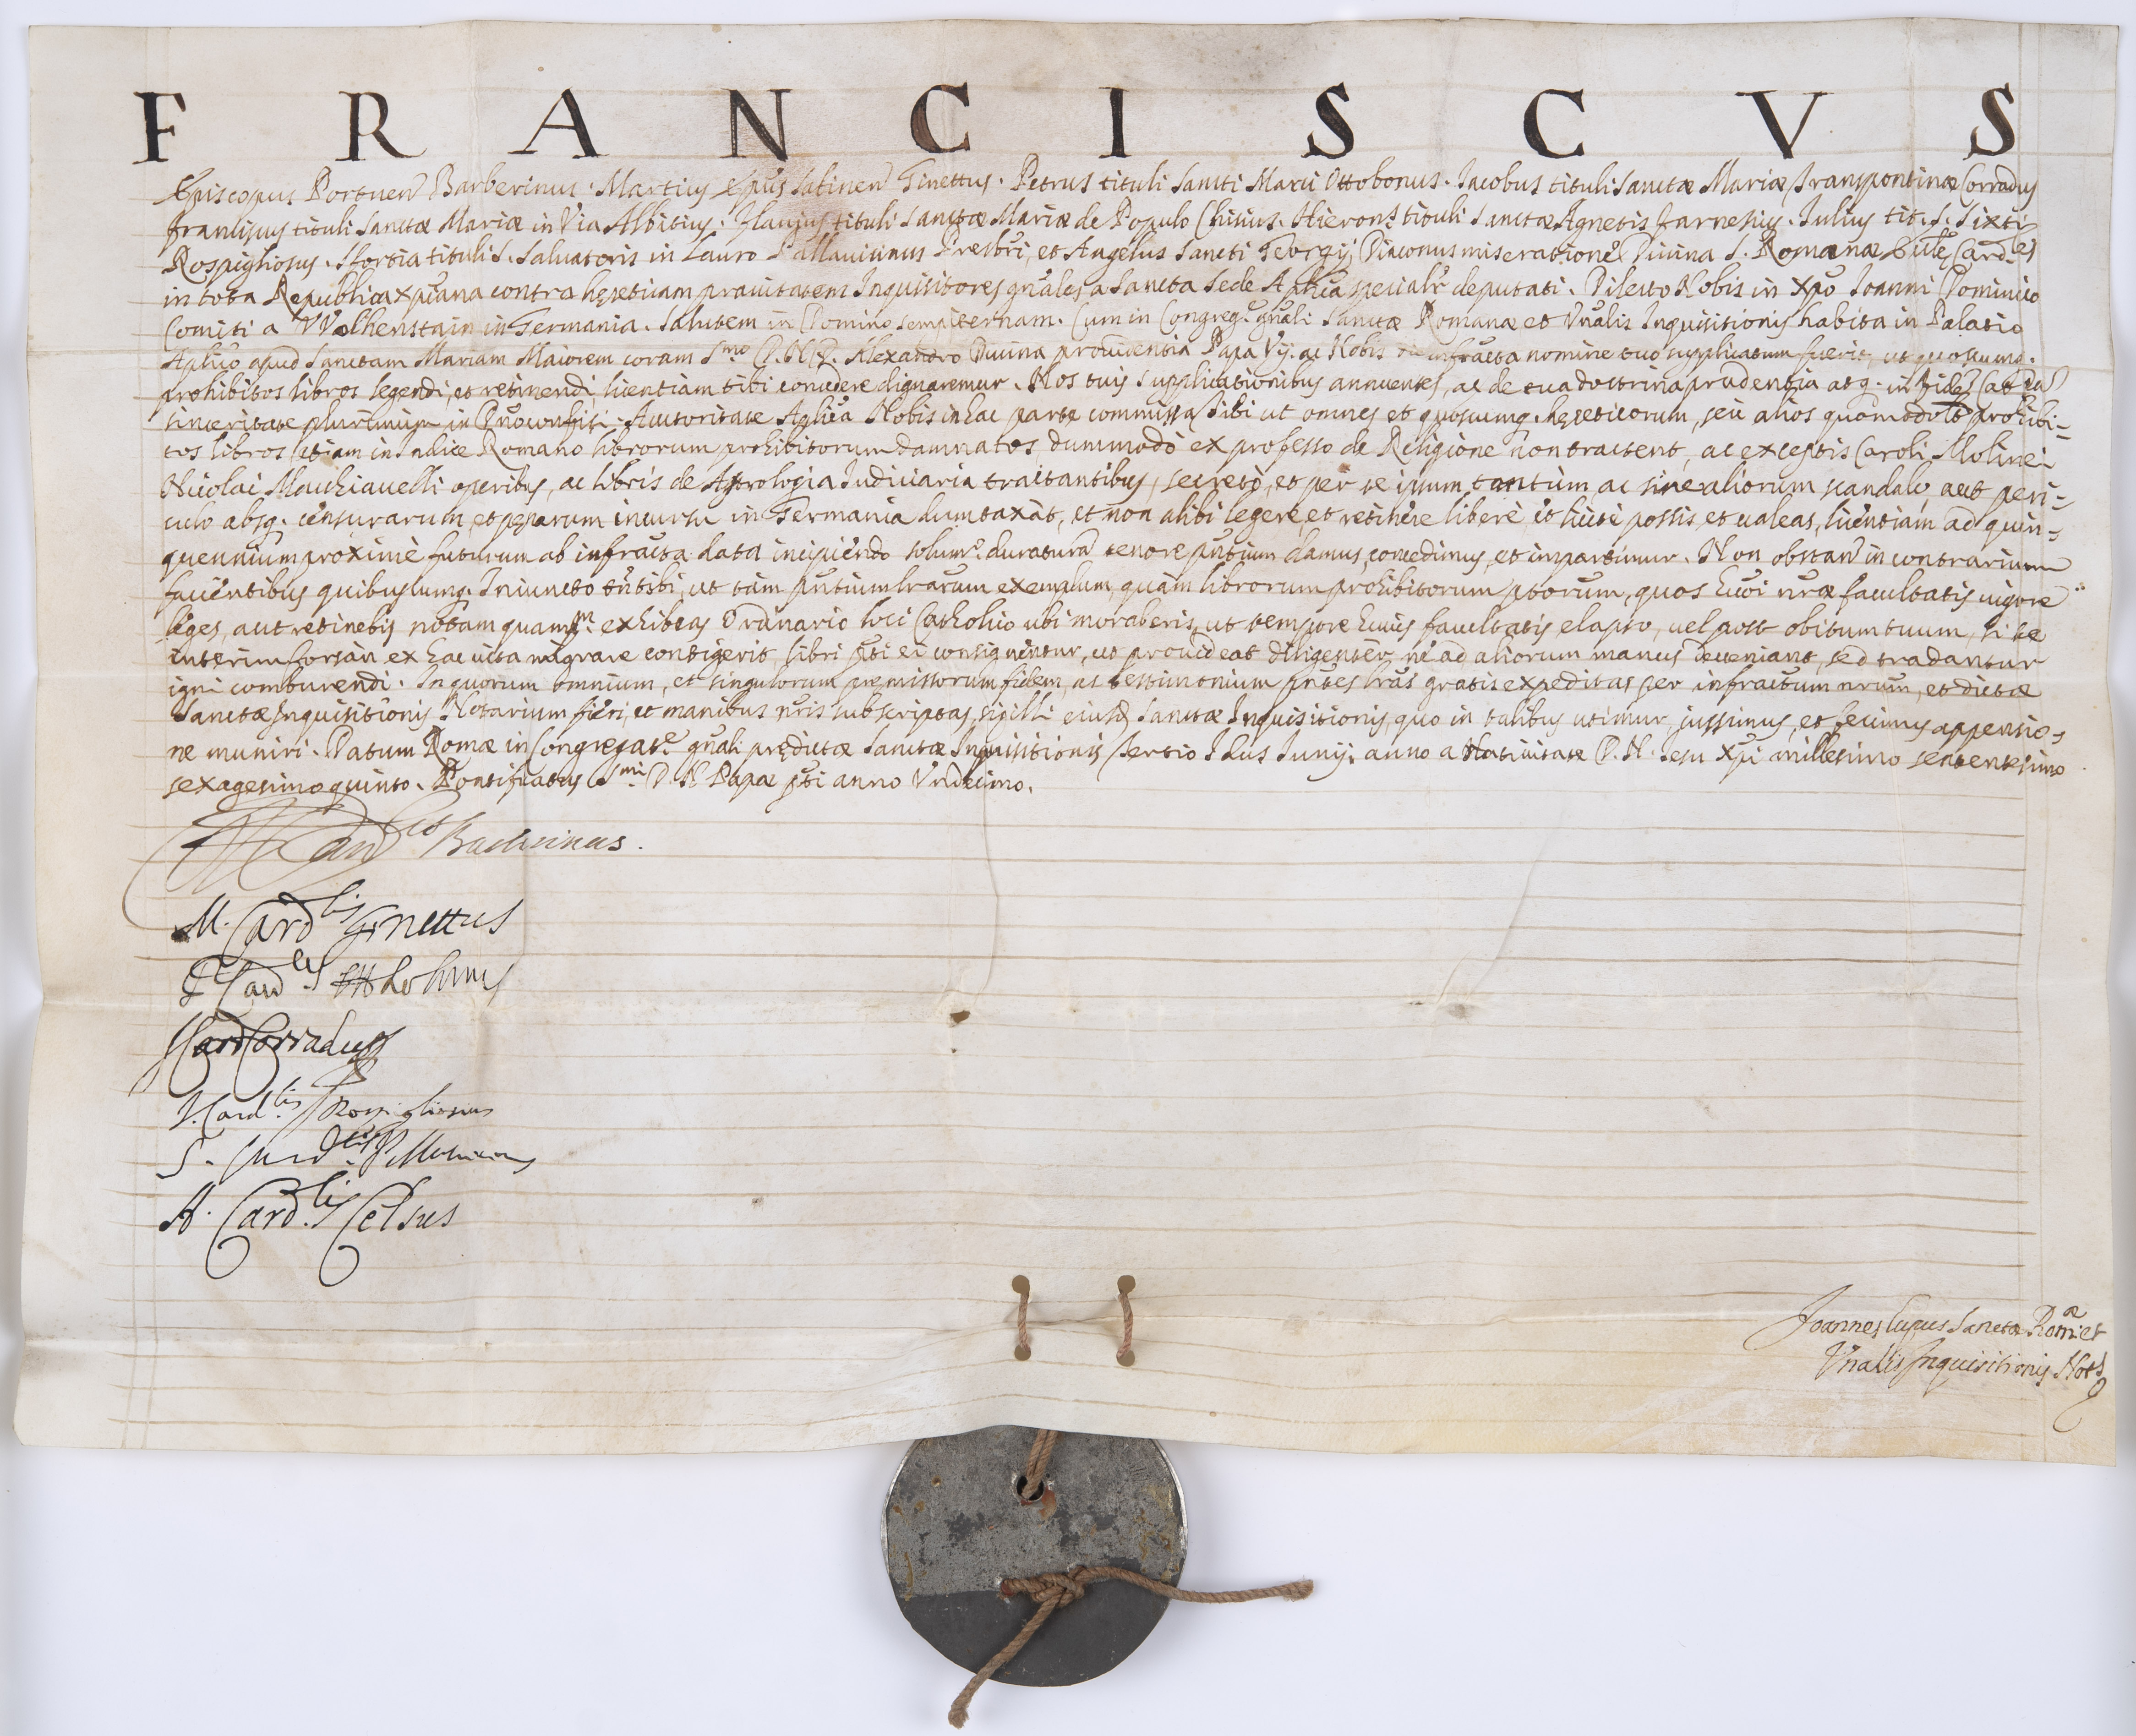 FRANCISCVS
Episcopus Portuen̄ Barberinus. Martius Epūs Sabinen̄ Ginettus. Petrus tituli Sancti Marci Ottobonus. Jacobus tituli Sanctæ Mariæ Transpontinæ Corradus
Franciscus tituli Sanctæ Mariæ in Via Albitius. Flavius tituli Sanctæ Mariæ de Populo Chisius. Hieron.s tituli Sanctæ Agnetis Farnesius. Julius tit. S. Sixti
Rospigliosus. Sfortia tituli S. Salvatoris in Lauro Pallavicinus Presbri, et Angelus Sancti Georgij Diaconus miseratione Divina S. Romanæ Eccle Card.les
in tota Republica xpiana contra hereticam pravitatem Inquisitores gnāles a Sancta Sede Aplica specialr deputati. Dilecto Nobis in Xpō Joanni Dominico
Comiti a VVolhenstain in Germania. Salutem in Domino sempiternam. Cum in Congreg.e gnāli Sanctæ Romanæ et Vnālis Inquisitionis habita in Palatio
Aplico apud Sanctam Mariam Maiorem coram S.mo D. N. D. Alexandro Divina providentia Papa Vij. ac Nobis infracta nomine tuo supplicatum fuerit, ut quoscumq.
prohibitos libros legendi, et retinendi licentiam tibi concedere dignaremur. Nos tuis supplicationibus annuentes, ac de tua doctrina prudentia atq. in fide Catcā
sinceritate plurimum in Dnō confisi. Auctoritate Aplica Nobis in hac parte commissa Tibi ut omnes et quoscumq. hereticorum, seu alios quomodolt prohibi=
tos libros etiam in Indice Romano librorum prohibitorum damnatos, dummodò ex professo de Religione non tractent, ac exceptis Caroli Molinei
Nicolai Macchiavelli operibus, ac libris de Astrologia Judiciaria tractantibus, secretò, et per te ipsum tantùm, ac sine aliorum scandalo, aut peri=
culo absq. censurarum, et penarum incursu in Germania dumtaxàt, et non alibi legere, et retinere liberè et licitè possis, et valeas, licentiam ad quin=
quennium proximè futurum ab infracta data incipiendo solum.o duraturā tenore pntium damus, concedimus, et impartimur. Non obstan̄ in contrarium
facientibus quibuscumq. Iniuncto tn̄ tibi, ut tàm pntium lrarum exemplum, quàm librorum prohibitorum ptorum, quos huoi nræ facultatis vigore
leges, aut retinebis notam quamp.m exhibeas Ordinario loci Catholico ubi moraberis, ut tempore huius facultatis elapso, vel post obitum tuum, si te
interim forsàn ex hac vita migrare contigerit, libri pti ei consignentur, ut provideat diligenter, nè ad aliorum manus deveniant, sed tradantur
igni comburendi. In quorum omnium, et singulorum premissorum fidem, ac testimonium pntes lras gratis expeditas per infractum nrum, et dictæ
Sanctæ Inquisitionis Notarium fieri, et manibus nris subscriptas, sigilli eiusd. Sanctæ Inquisitionis, quo in talibus utimur, jussimus, et fecimus appensio=
ne muniri. Datum Romæ in Congregat.e gnāli predictæ Sanctæ Inquisitionis Tertio Idus Junij anno a Nativitate D. N. Jesu Xpi millesimo sexcentesimo
sexagesimo quinto. Pontificatus S.mi D. N. Papæ pti anno Undecimo.
Card.lis Barberinus.
M. Card.lis Ginettus
P. Card.lis Ottobonus
J. Card. Corradus
J. Card.lis Rospigliosius
S. Card.lis Pallavicinus
A. Card.lis Celsus
Joannes Lupus Sanctæ Rom.æ et
Vnālis Inquisitionis Not.s